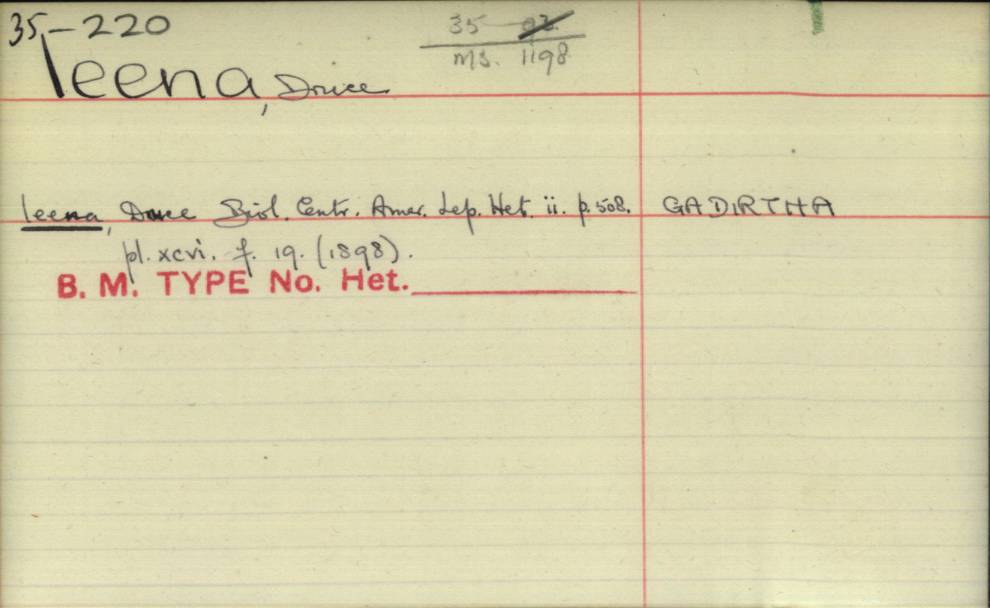 35-220
35 02.
MS. 1198
leena, Druce
leena, Druce Biol. Centr. Amer. Lep. Het. ii. p. 508. GADIRTHA
pl. xcvi. f. 19. (1898).
B. M. TYPE No. Het.